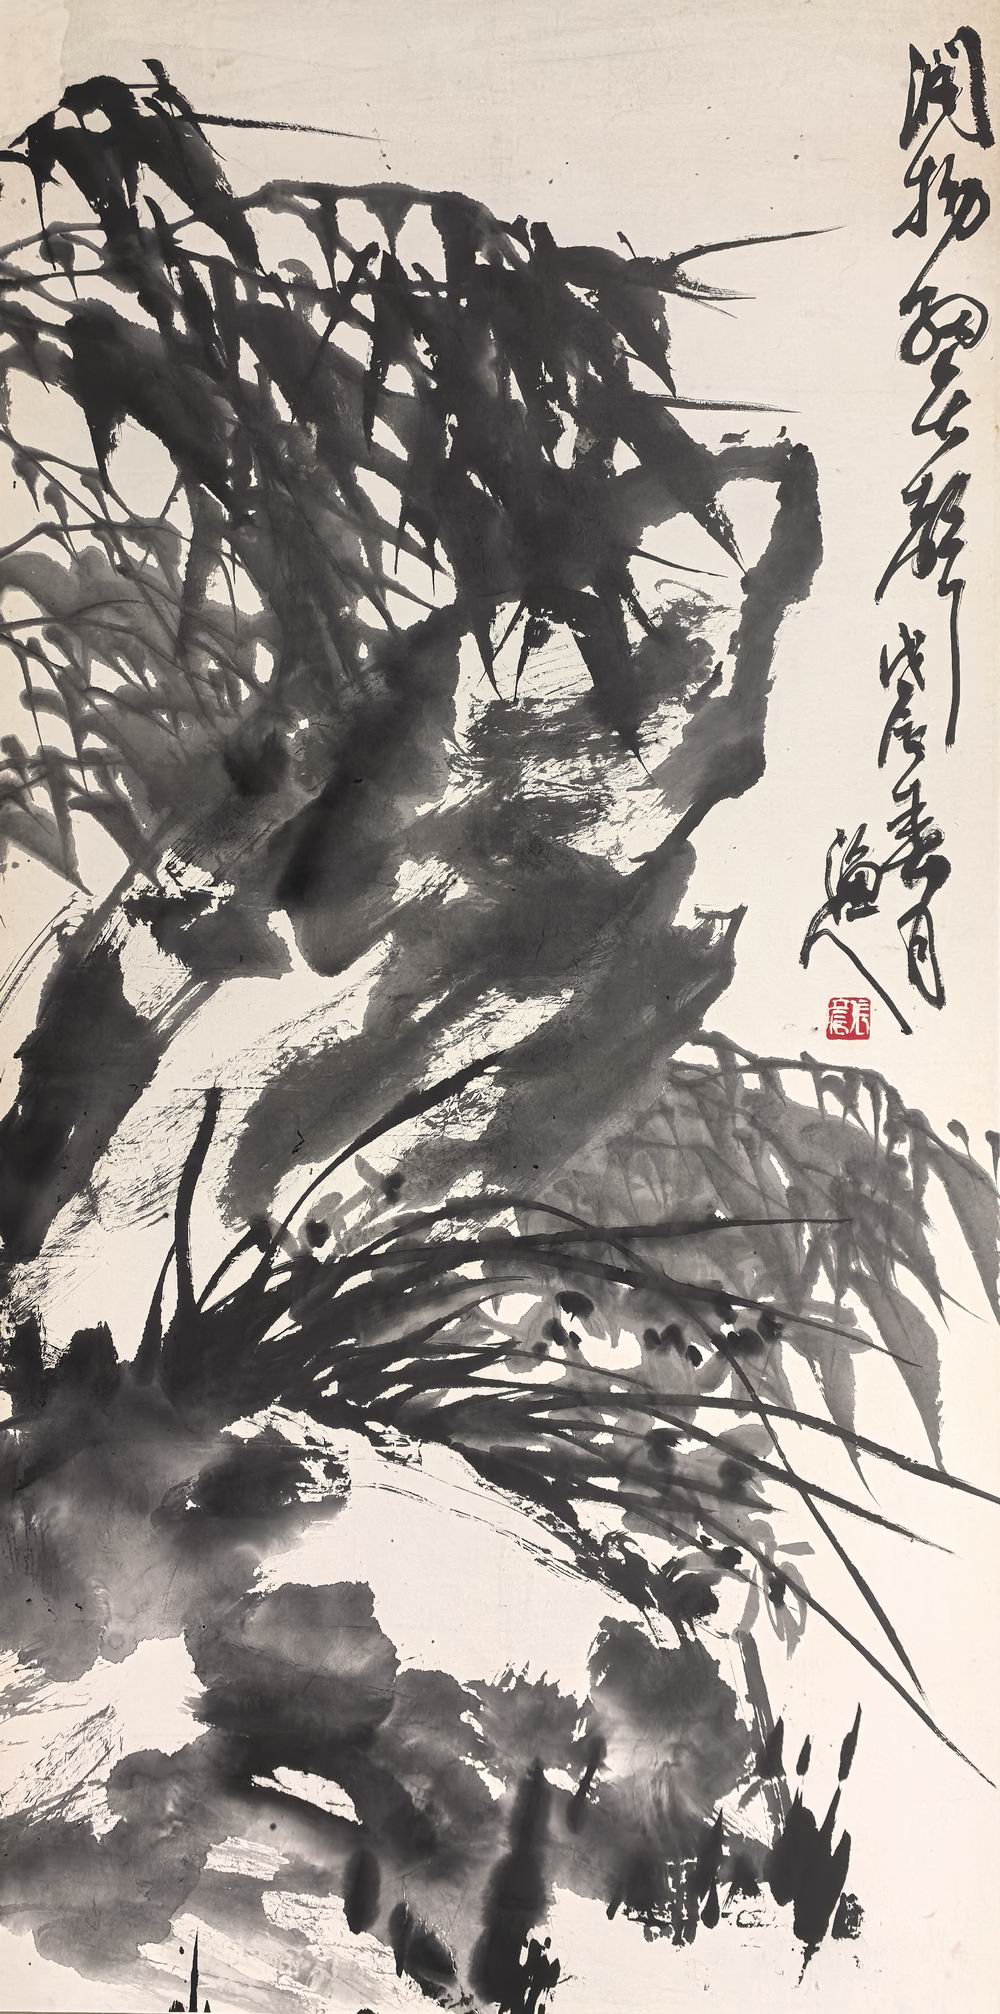 润物细无声
戊辰春月
渔人